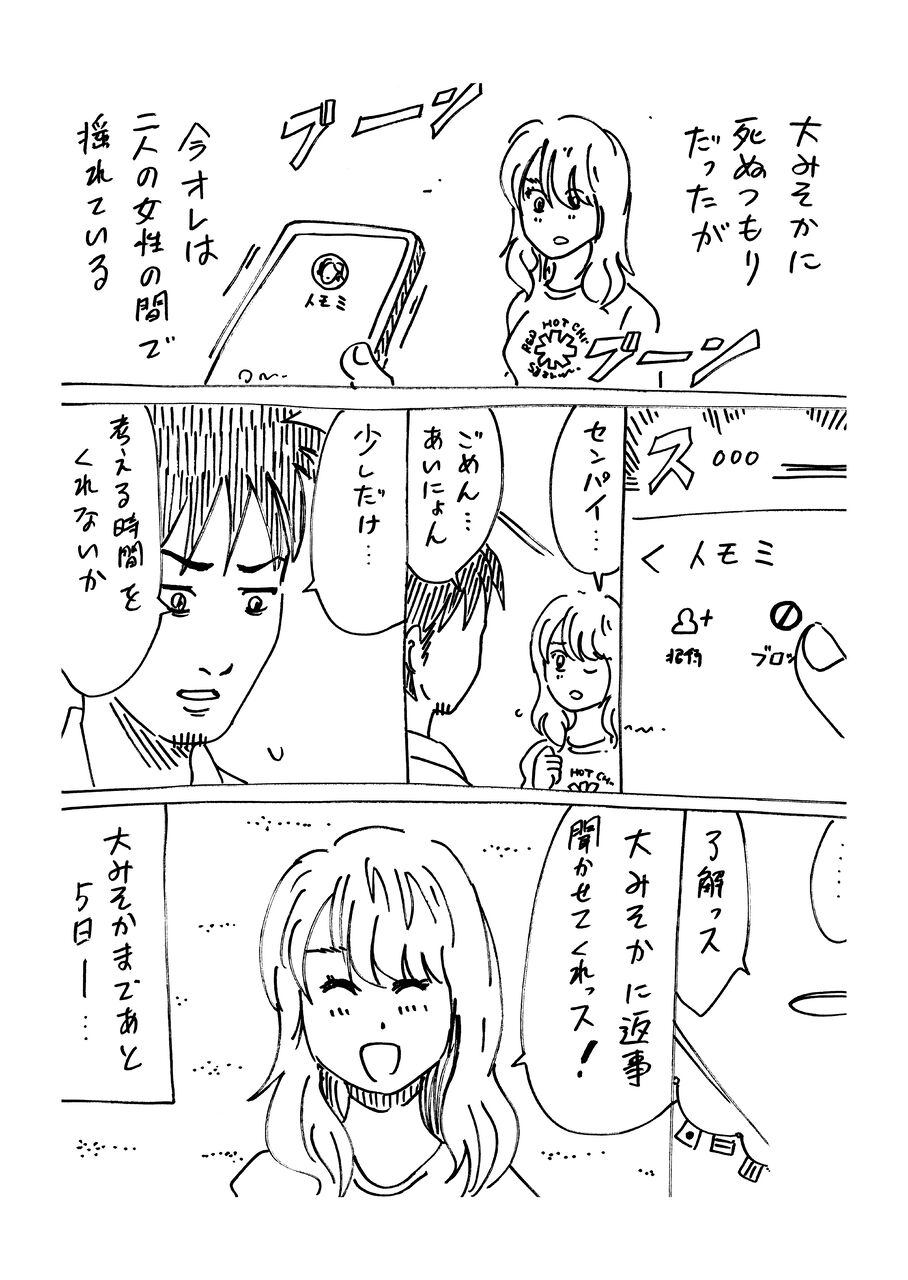 大みそかに
死ぬつもり
だったが
ブーッ
RED HOT CHI
ブーッ
イモミ
今オレは
二人の女性の間で
揺れている
ス...
く イモミ
招待
ブロッ
センパイ…
HOT CH
ごめん…
あいにょん
少しだけ…
考える時間を
くれないか
……
了解っス
大みそかに返事
聞かせてくれっス!
大みそかまであと
5日ー…